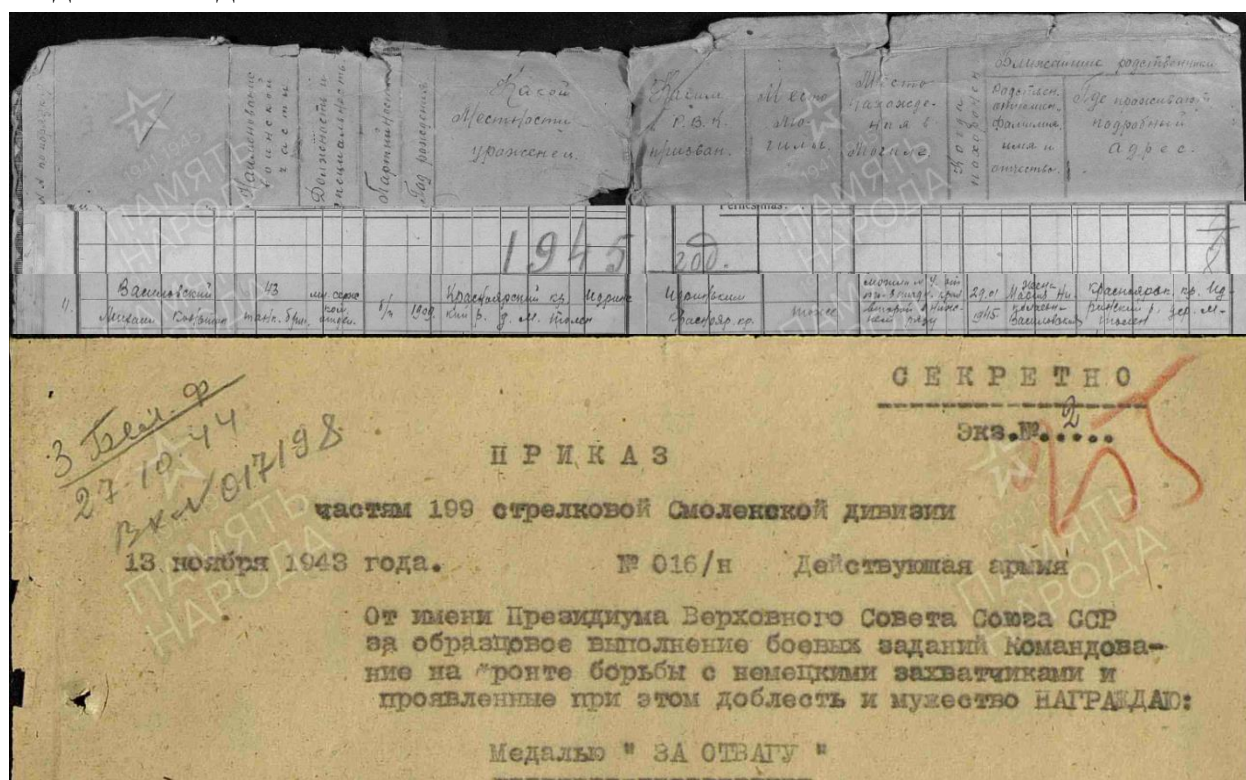 Наименование воинской части
Должность и специальность
Партийность
Год рождения
Какой местности уроженец.
Каким Р.В.К. призван.
Место могилы
Место нахождения в могиле
Когда похоронен
Ближайшие родственники
Родствен. отношен. фамилия, имя и отчество.
Где проживают подробный адрес.
1945 год.
Василовский 43 мл. серж. 1909 Красноярский кр. Идринский
Михаил танк. бриг. ком. отдел. б/п кий р. д. М. Телек Краснояр. кр. тоже
29.01 1945 жена
Василовская
Красноярск. кр. Ид-
ринский р. дер. М-
СЕКРЕТНО
Экз.№ 2
3 Бел. Ф
27.10.44
Вх №017198
ПРИКАЗ
частям 199 стрелковой Смоленской дивизии
13 ноября 1943 года. № 016/н Действующая армия
От имени Президиума Верховного Совета Союза ССР
за образцовое выполнение боевых заданий Командова-
ние на фронте борьбы с немецкими захватчиками и
проявленные при этом доблесть и мужество НАГРАЖДАЮ:
Медалью " ЗА ОТВАГУ "
ПАМЯТЬ НАРОДА
1941-1945